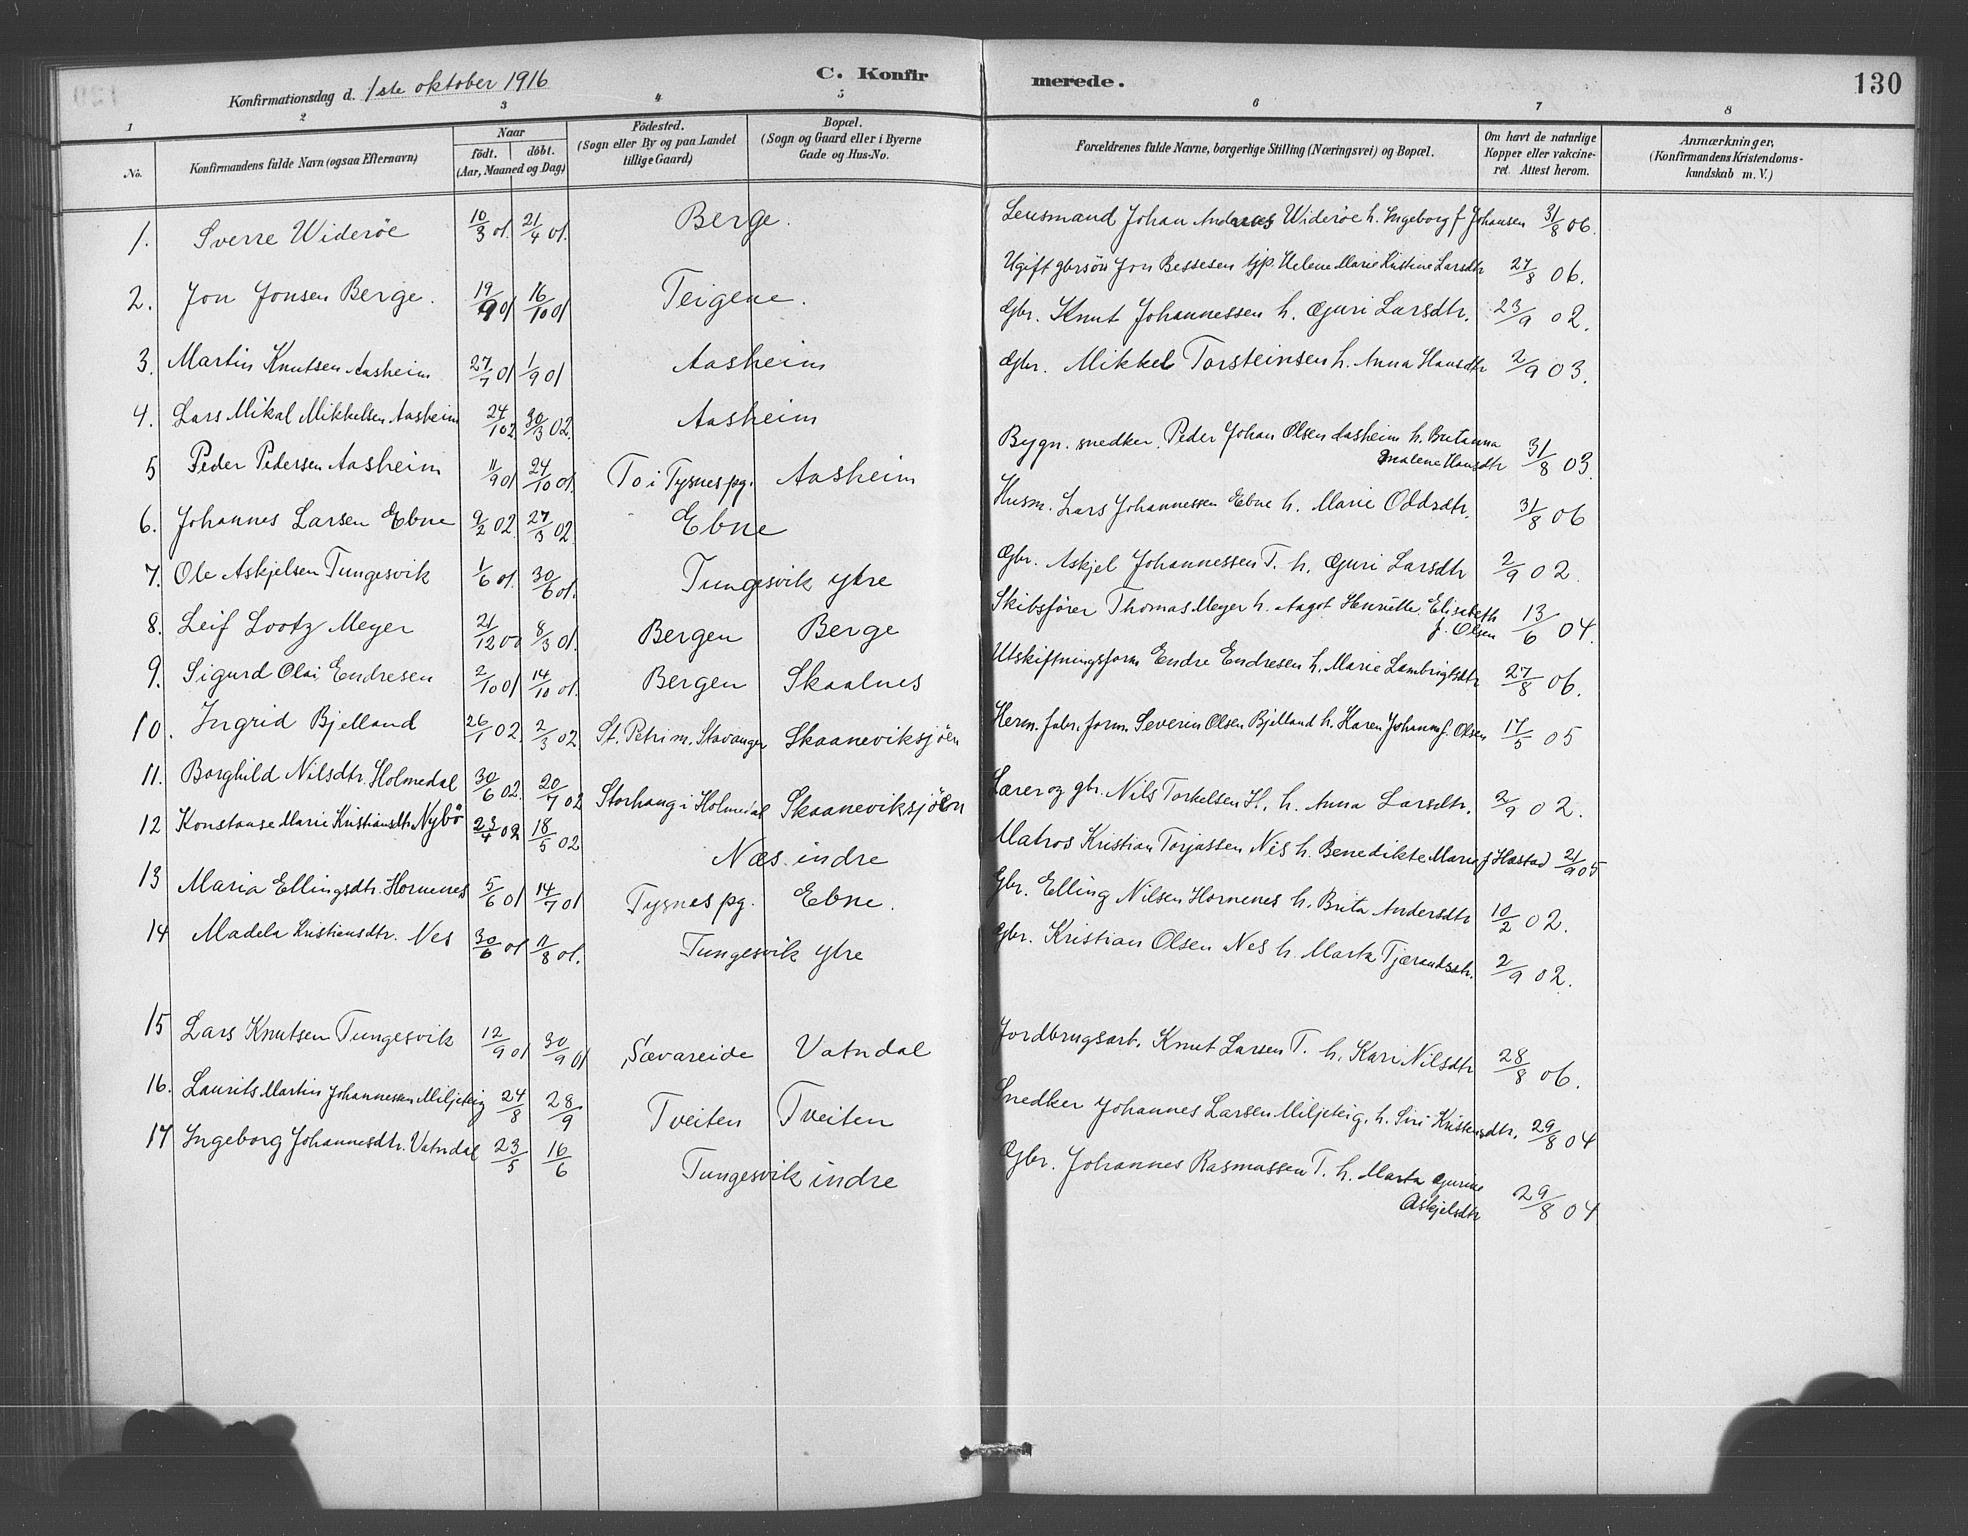 C. Konfirmerede. 130
Konfirmationsdag d. 1ste oktober 1916
1 2 3 4 5 6 7 8
No. Konfirmandens fulde Navn (ogsaa Efternavn) Naar födt. döbt. (Aar, Maaned og Dag) Födested. (Sogn eller By og paa Landet tillige Gaard) Bopæl. (Sogn og Gaard eller i Byerne Gade og Hus-No. Forældrenes fulde Navne, borgerlige Stilling (Næringsvei) og Bopæl. Om havt de naturlige Kopper eller vakcineret. Attest herom. Anmærkninger, (Konfirmandens Kristendomskundskab m. V.)
1. Sverre Wideröe 10/3 01. 21/4 01. Berge. Lensmand Johan Andreas Wideröe h. Ingeborg f Johansen 31/8 06.
2. Jon Jonsen Berge. 19/9 01 16/10 01 Teigene. Ugift gbrsön Jon Bessesen tjp. Helene Marie Kristine Larsdtr 27/8 06.
3. Martin Knutsen Aasheim 27/7 01 1/9 01 Aasheim Gbr. Knut Johannessen h. Guri Larsdtr. 23/9 02.
4. Lars Mikal Mikkelsen Aasheim 24/1 02 30/3 02. Aasheim Gbr. Mikkel Torsteinsen h. Anna Hansdtr 2/9 03.
5 Peder Pedersen Aasheim 11/9 01 24/10 01. To i Tysnes pg. Aasheim Bygn. snedker. Peder Johan Olsen Aasheim h. Britanna Malene Hansdtr 31/8 03.
6. Johannes Larsen Ebne 9/2 02. 27/3 02. Ebne Husm. Lars Johannessen Ebne h. Marie Oddsdtr. 31/8 06
7. Ole Askjelsen Tungesvik 1/6 01. 30/6 01. Tungesvik ytre Gbr. Askjel Johannessen T. h. Guri Larsdtr 2/9 02.
8. Leif Lootz Meyer 21/12 00 8/3 01. Bergen Berge Skibsförer Thomas Meyer h. Aagot Henriette Elisabeth f. Olsen 13/6 04.
9. Sigurd Olai Endresen 2/10 01 14/10 01. Bergen Skaalnes Utskiftningsform Endre Endresen h. Marie Lambrigtsdtr 27/8 06.
10. Ingrid Bjelland 26/1 02. 2/3 02 St. Petri m. Stavanger Skaaneviksjöen Herm. fabr. form. Severin Olsen Bjelland h. Karen Johanna f. Olsen 17/5 05
11. Borghild Nilsdtr. Holmedal 30/6 02. 20/7 02 Storhaug i Holmedal Skaaneviksjöen Lærer og gbr. Nils Torkelsen H. h. Anna Larsdtr. 2/9 02.
12 Konstanse Marie Kristiansdtr Nybö 23/4 02 18/5 02 Næs indre Matros Kristian Torjassen Nes h. Benedikte Marie f Hastad 21/9 05
13 Maria Ellingsdtr. Hornenes 5/6 01 14/7 01 Tysnes pg. Ebne. Gbr. Elling Nilsen Hornenes h. Brita Andersdtr 10/2 02.
14 Madela Kristiansdtr. Nes 30/6 01 11/8 01. Tungesvik ytre Gbr. Kristian Olsen Nes h. Marta Tjærandsdtr. 2/9 02.
15 Lars Knutsen Tungesvik 12/9 01 30/9 01 Sævareide Vatndal Jordbrugsarb. Knut Larsen T. h. Kari Nilsdtr 28/8 06.
16. Laurits Martin Johannessen Miljeteig 24/8 28/9 Tveiten Tveiten Snedker Johannes Larsen Miljeteig. h. Siri Kristensdtr. 29/8 04
17 Ingeborg Johannesdtr. Vatndal 23/5 16/6 Tungesvik indre Gbr. Johannes Rasmussen T. h. Marta Gurine Askjelsdtr 29/8 04